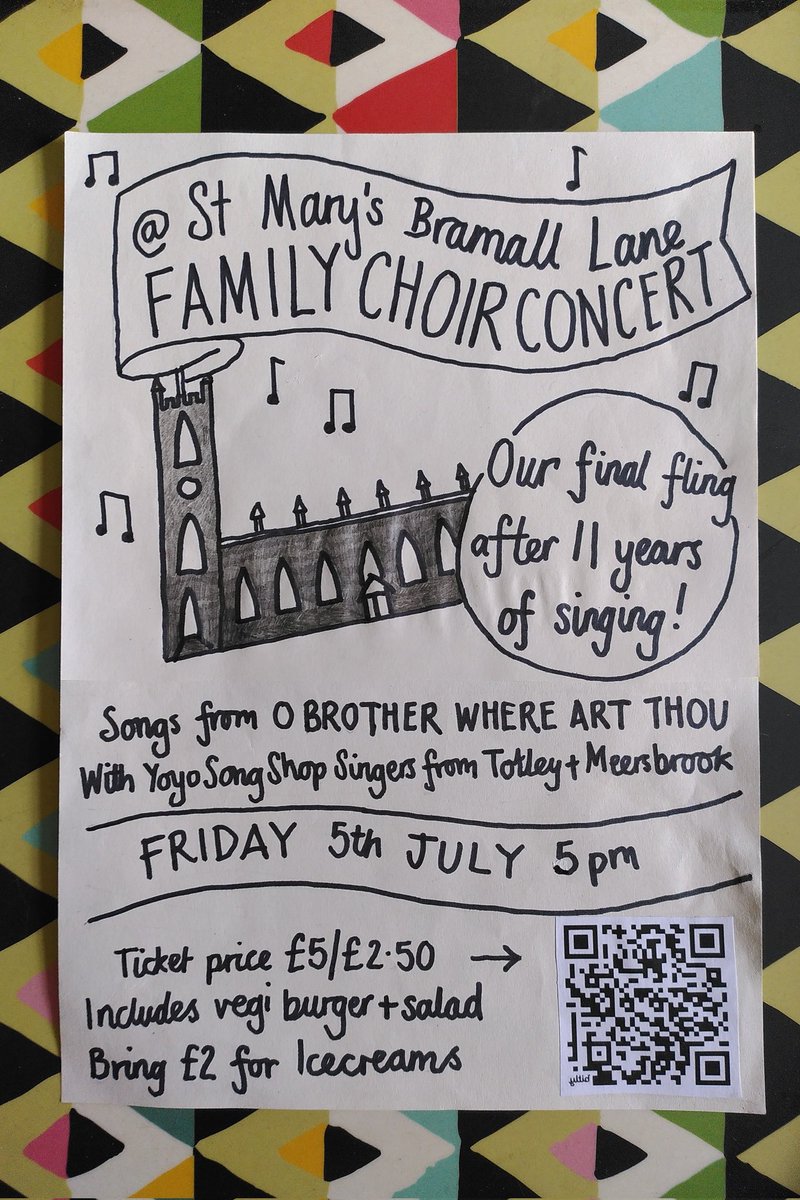 @ St Mary's Bramall Lane
FAMILY CHOIR CONCERT
Our final fling
after 11 years
of singing!
Songs from O BROTHER WHERE ART THOU
With Yoyo Song Shop Singers from Totley + Meersbrook
FRIDAY 5th JULY 5pm
Ticket price £5/£2·50 →
Includes vegi burger + salad
Bring £2 for Icecreams